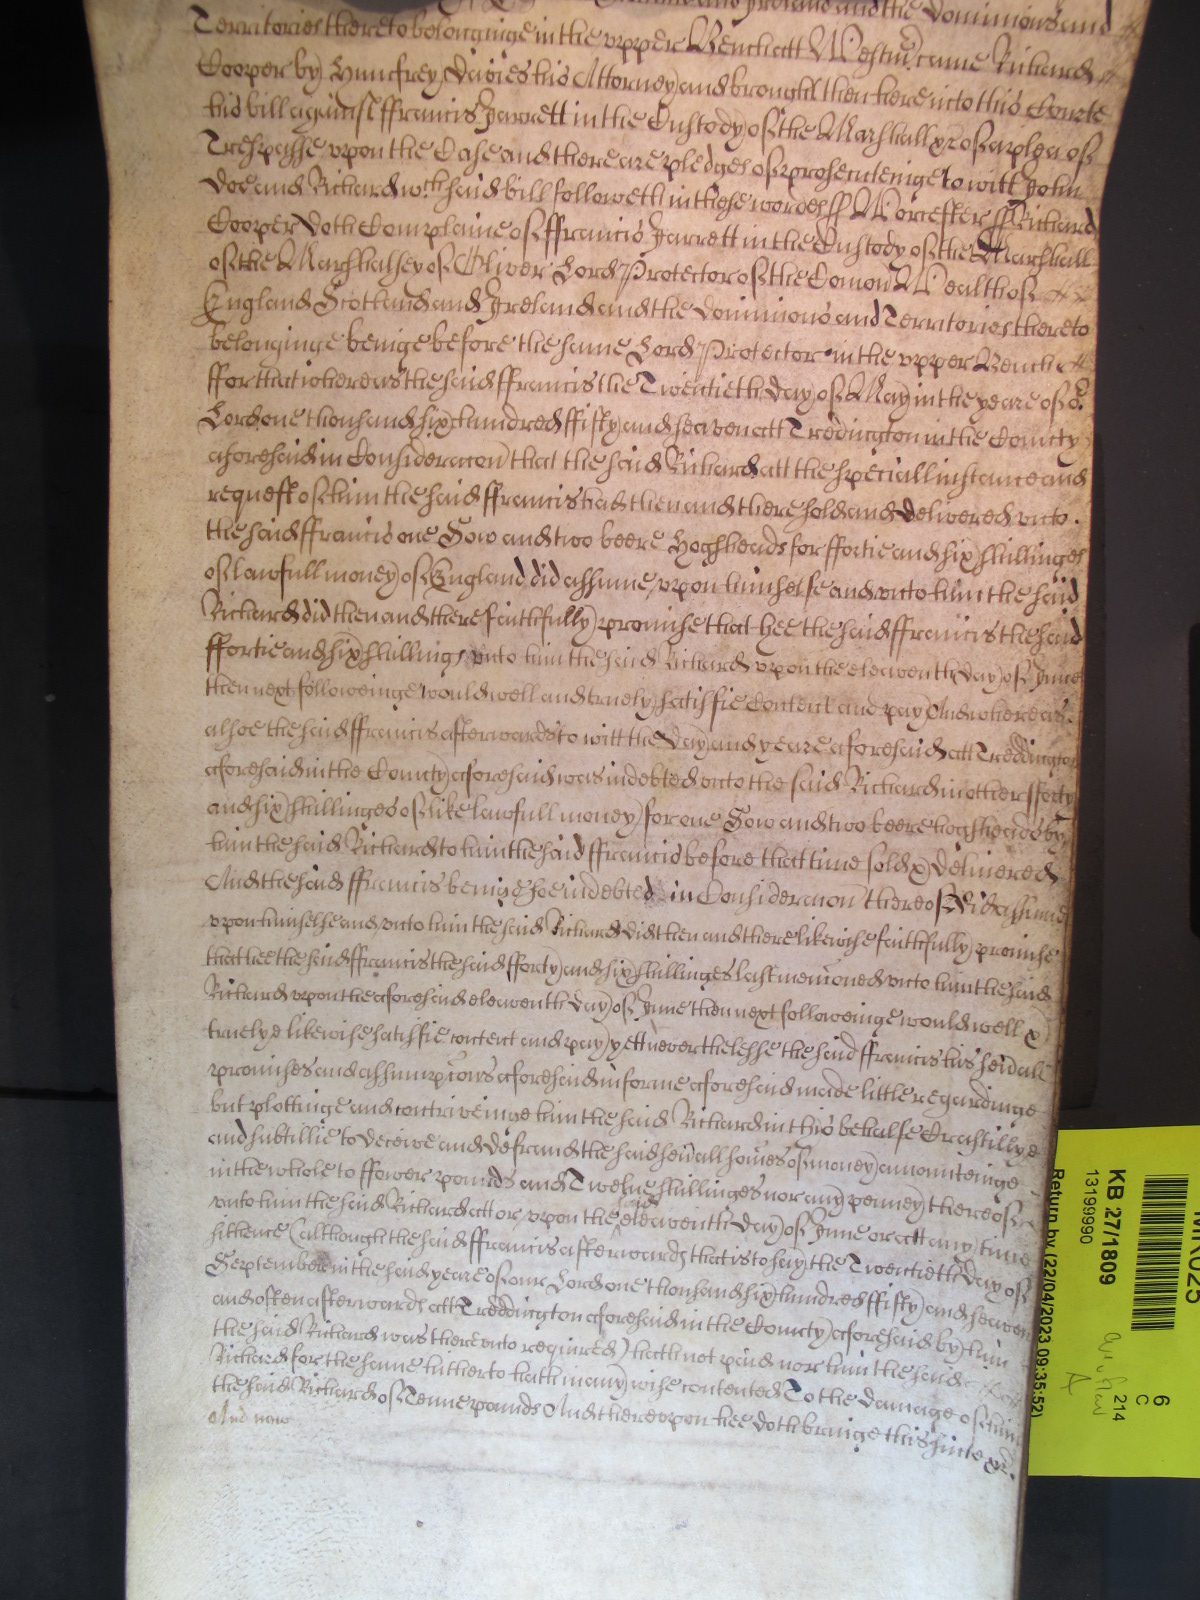 and Ireland and the Dominions and
Territories thereto belonginge in the vpper Bench att Westm̃ came Richard
Cooper by Humfrey Davies his Attorney and brought then here into this Courte
his bill against ffrancis Jarrett in the Custody of the Marshall &c of a plea of
Trespasse vpon the Case and there are pledges of prosecuteinge to witt John
Doe and Richard w:ch said bill followeth in these wordes ss Worcester ss Richard
Cooper doth Complaine of ffrancis Jarrett in the Custody of the Marshall
of the Marshalsey of Oliver Lord Protector of the Comon Wealth of
England Scotland and Ireland and the Dominions and Territories thereto
belonginge beinge before the same Lord Protector in the vpper Bench
ffor that whereas the said ffrancis the Twentieth day of May in the yeare of o:r
Lord one thousand six hundred ffifty and seaven att Tredington in the County
aforesaid in Consideracon that the said Richard att the speciall instance and
request of him the said ffrancis had then and there sold and delivered vnto
the said ffrancis one Sow and two beere Hogsheads for ffortie and six shillinges
of lawfull money of England did assume vpon himselfe and vnto him the said
Richard did then and there faithfully promise that hee the said ffrancis the said
ffortie and six shillings vnto him the said Richard vpon the eleaventh day of June
then next followeinge would well and truely satisfie Content and pay And whereas
alsoe the said ffrancis afterwards to witt the day and yeare aforesaid att Treddington
aforesaid in the County aforesaid was indebted vnto the said Richard in other fforty
and six shillinges of like lawfull money for one Sow and two beere hogsheads by
him the said Richard to him the said ffrancis before that time sold & delivered
And the said ffrancis beinge soe indebted in Consideracon thereof did assume
vpon himselfe and vnto him the said Richard did then and there likewise faithfully promise
that hee the said ffrancis the said fforty and six shillinges last mencõned vnto him the said
Richard vpon the aforesaid eleaventh day of June then next followeinge would well &
truely likewise satisfie content and pay yett neverthelesse the said ffrancis his sev̄all
promises and assumpc̃ons aforesaid in forme aforesaid made little regardinge
but plottinge and contriveinge him the said Richard in this behalfe Craftilly
and subtillie to deceive and defraud the said sev̄all som̃es of money amounteinge
in the whole to ffower pounds and Twelve shillinges nor any penney thereof
vnto him the said Richard att or vpon the said eleaventh day of June or att any time
sithence (although the said ffrancis afterwards that is to say the Twentieth day of
September in the said yeare of our Lord one thousand six hundred ffifty and seaven
and often afterwards att Treddington aforesaid in the County aforesaid by him
the said Richard was therevnto required) hath not paid nor him the said
Richard for the same hitherto hath in any wise contented To the damage of him
the said Richard of Tenne pounds And therevpon hee doth bringe this suite &c.
And now
KB 27/1809
13199990
Return by (22/04/2023 09:35:52)
6
C
214
A